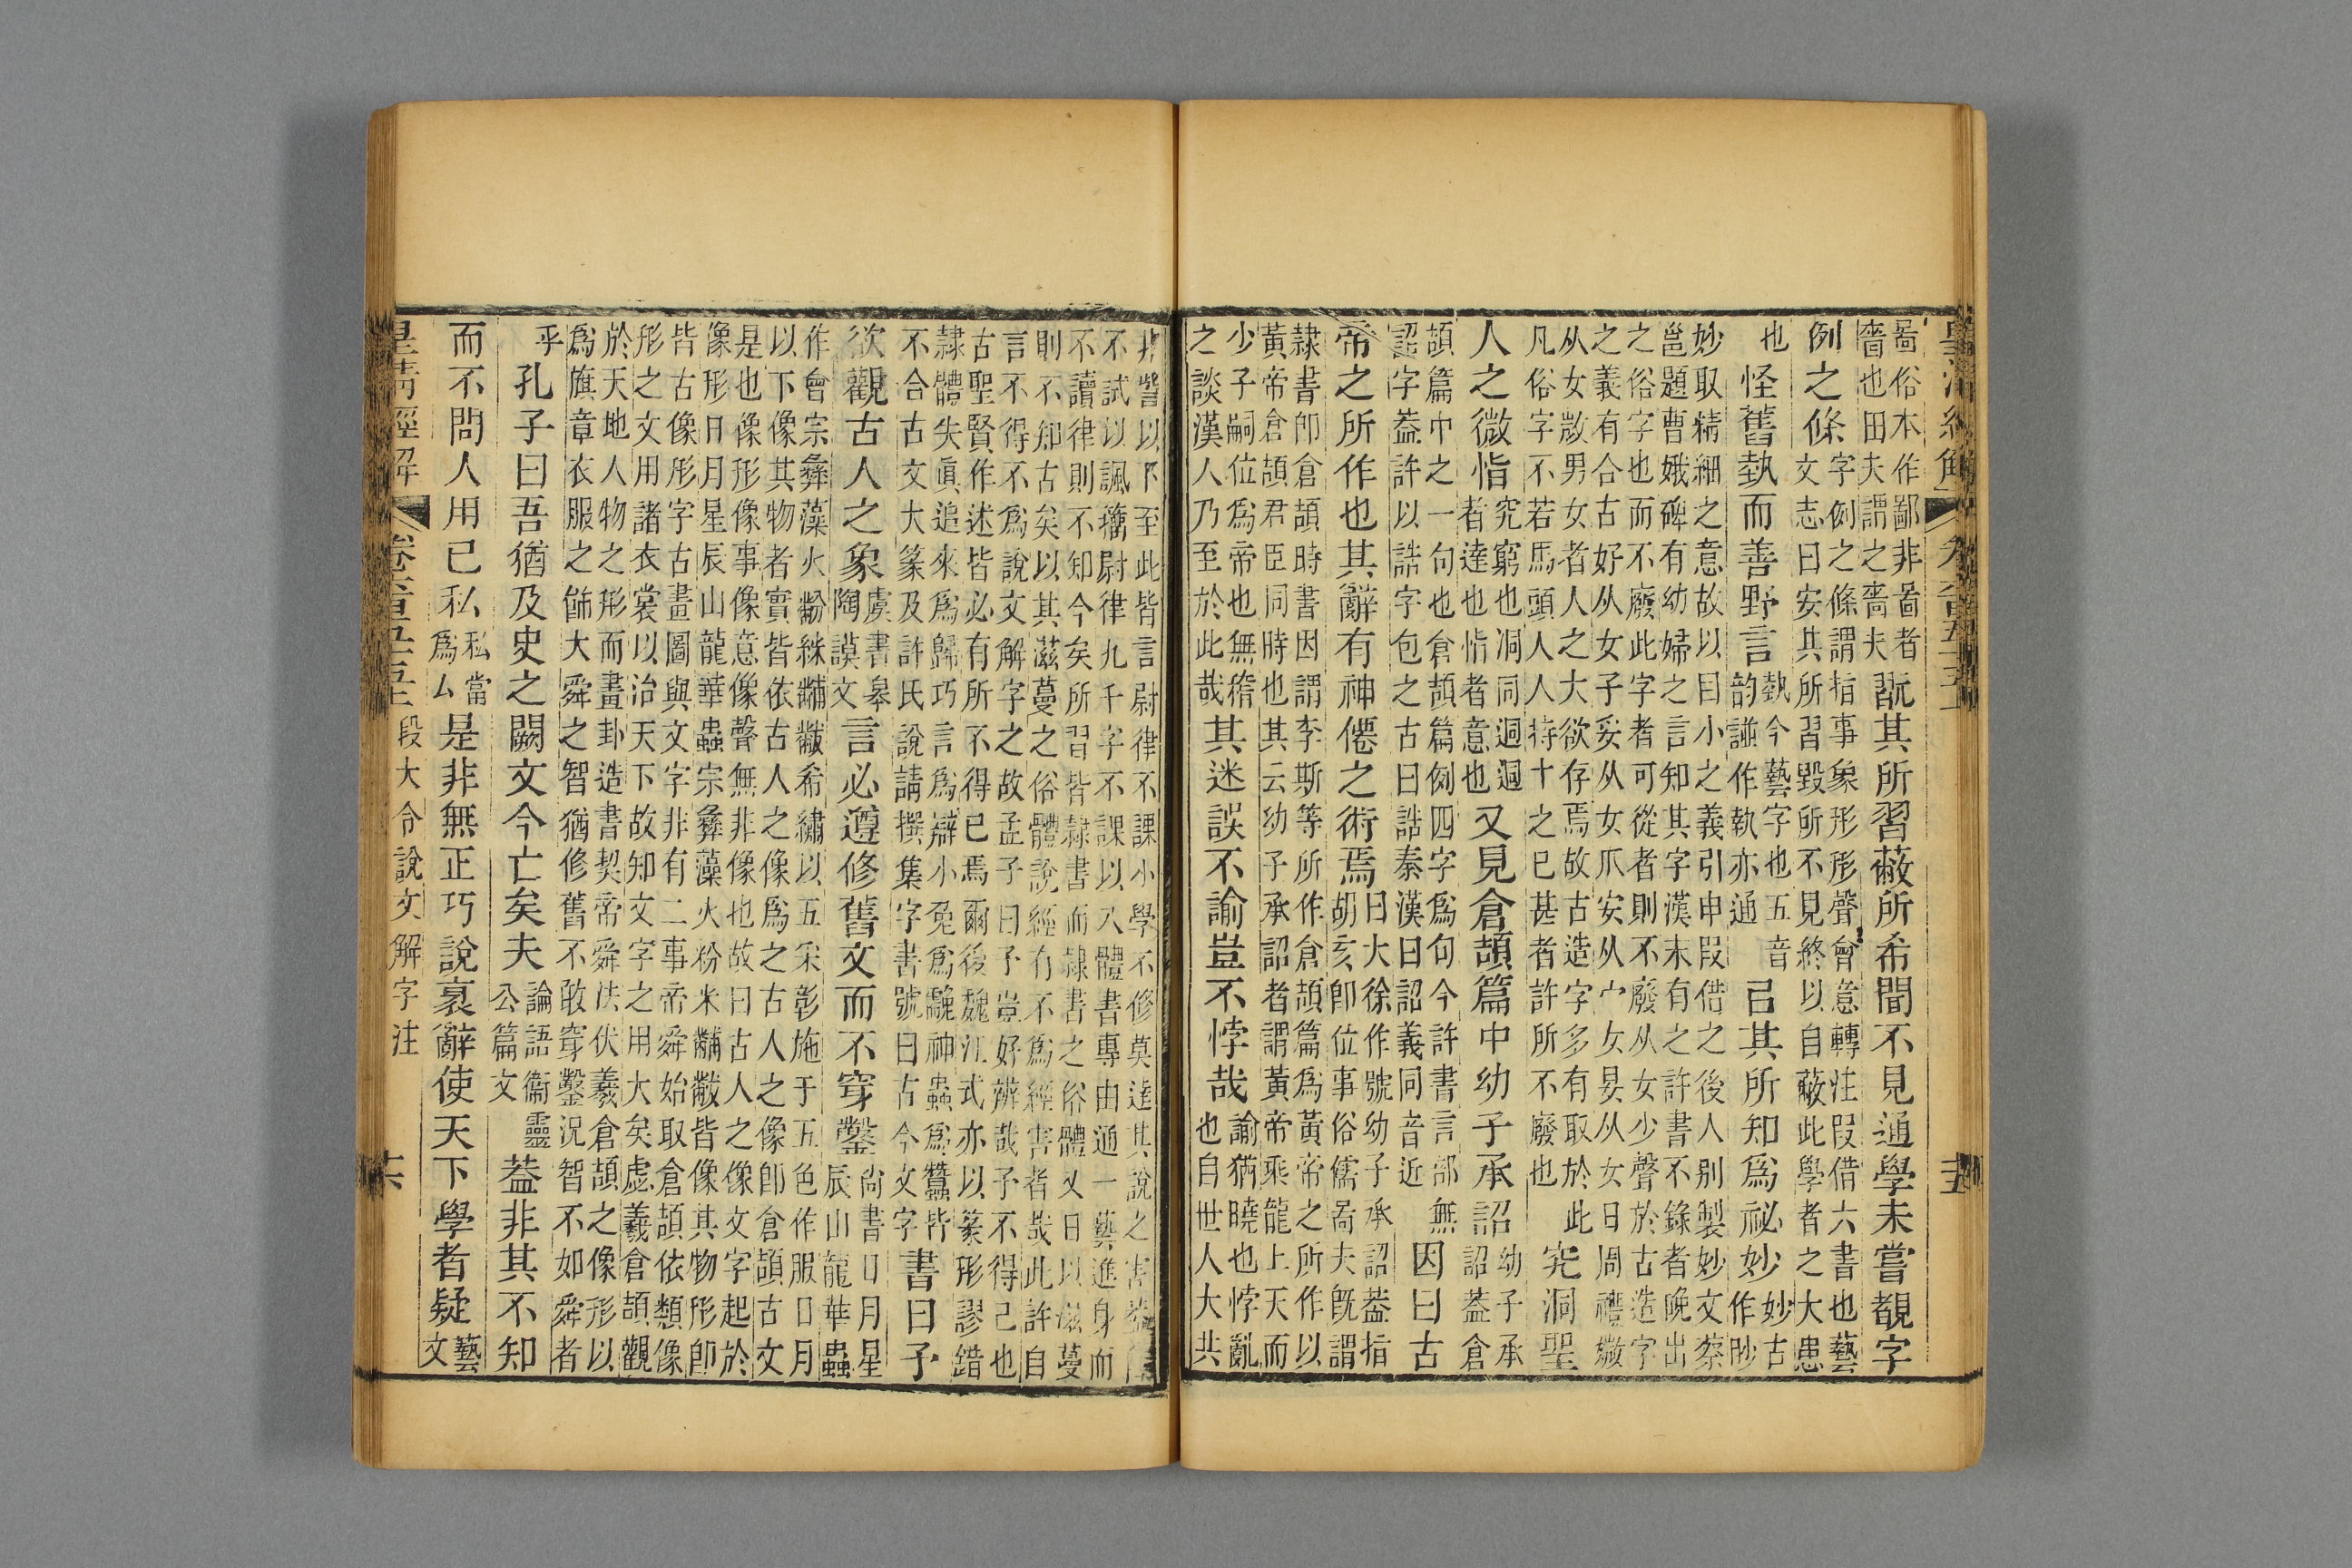 皇清經解 卷六百五十五上 十五
啚俗本作鄙非啚者
嗇也田夫謂之嗇夫
翫其所習蔽所希聞不見通學未嘗覩字
例之條
字例之條謂指事象形形聲會意轉注叚借六書也藝
文志曰安其所習毀所不見終以自蔽此學者之大患
也
怪舊埶而善野言
埶今藝字也五音
韵譜作執亦通
㠯其所知爲祕妙
妙古
作眇
妙取精細之意故以目小之義引申叚借之後人別製妙文蔡
邕題曹娥碑有幼婦之言知其字漢末有之許書不錄者晚出
之俗字也而不廢此字者可從者則不廢从女少聲於古造字
之義有合古好从女子妥从女爪安从宀女妟从女日周禮媺
从女敚男女者人之大欲存焉故古造字多有取於此
凡俗字不若馬頭人人持十之已甚者許所不廢也
究洞聖
人之微恉
究窮也洞同迵迵
者達也恉者意也
又見倉頡篇中幼子承詔
幼子承
詔葢倉
頡篇中之一句也倉頡篇例四字爲句今許書言部無
詔字葢許以誥字包之古曰誥秦漢曰詔義同音近
因曰古
帝之所作也其辭有神僊之術焉
曰大徐作號幼子承詔葢指
胡亥卽位事俗儒啚夫旣謂
隸書卽倉頡時書因謂李斯等所作倉頡篇爲黃帝之所作以
黃帝倉頡君臣同時也其云幼子承詔者謂黃帝乘龍上天而
少子嗣位爲帝也無稽
之談漢人乃至於此哉
其迷誤不諭豈不悖哉
諭猶曉也悖亂
也自世人大共
非訾以下至此皆言尉律不課小學不修莫達其說之害葢自
不試以諷籒尉律九千字不課以八體書專由通一藝進身而
不讀律則不知今矣所習皆隸書而隸書之俗體又日以滋蔓
則不知古矣以其滋蔓之俗體說經有不爲經害者哉此許自
言不得不爲說文解字之故孟子曰予豈好辨哉予不得已也
古聖賢作述皆必有所不得已焉爾後魏江式亦以篆形謬錯
隸體失眞追來爲歸巧言爲辯小兔爲䨲神蟲爲蠶皆
不合古文大篆及許氏說請撰集字書號曰古今文字
書曰予
欲觀古人之象
虞書皋
陶謨文
言必遵修舊文而不穿鑿
尚書日月星
辰山龍華蟲
作會宗彝藻火黺䋛黼黻希繡以五采彰施于五色作服日月
以下像其物者實皆依古人之像爲之古人之像卽倉頡古文
是也像形像事像意像聲無非像也故曰古人之像文字起於
像形日月星辰山龍華蟲宗彝藻火粉米黼黻皆像其物形卽
皆古像形字古畫圖與文字非有二事帝舜始取倉頡依類像
形之文用諸衣裳以治天下故知文字之用大矣虙羲倉頡觀
於天地人物之形而畫卦造書契帝舜法伏羲倉頡之像形以
爲旗章衣服之飾大舜之智猶修舊不敢穿鑿況智不如舜者
乎
孔子曰吾猶及史之闕文今亡矣夫
論語衞靈
公篇文
葢非其不知
而不問人用己私
私當
爲厶
是非無正巧說衺辭使天下學者疑
藝
文
皇清經解 卷六百五十五上 段大令說文解字注 十六